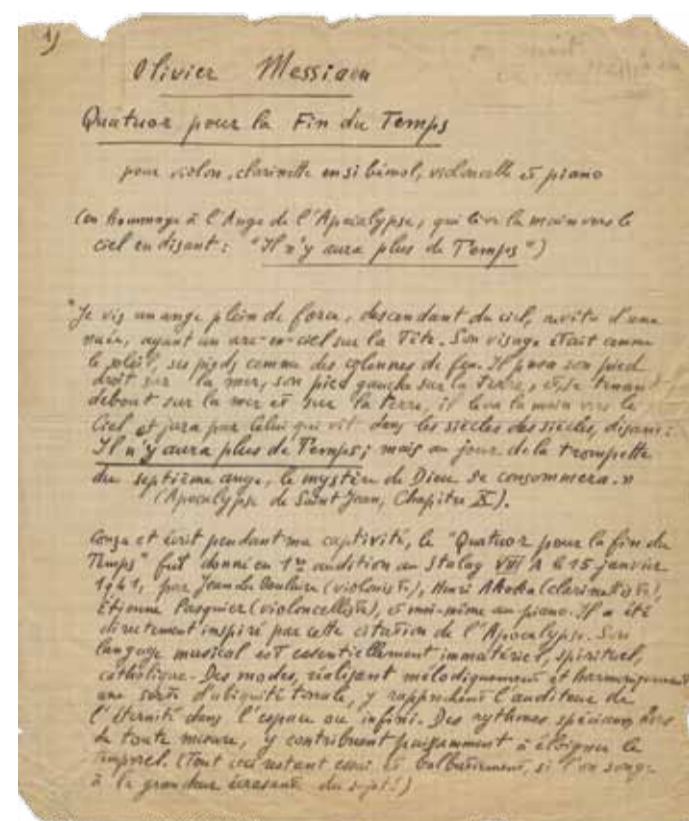 1)
Olivier Messiaen
Quatuor pour la Fin du Temps
pour violon, clarinette en si bémol, violoncelle et piano
(en hommage à l'Ange de l'Apocalypse, qui lève la main vers le
ciel en disant : "Il n'y aura plus de Temps")
"Je vis un ange plein de force, descendant du ciel, revêtu d'une
nuée, ayant un arc-en-ciel sur la tête. Son visage était comme
le soleil, ses pieds comme des colonnes de feu. Il posa son pied
droit sur la mer, son pied gauche sur la terre, et, se tenant
debout sur la mer et sur la terre, il leva la main vers le
Ciel et jura par Celui qui vit dans les siècles des siècles, disant :
Il n'y aura plus de Temps; mais au jour de la trompette
du septième ange, le mystère de Dieu se consommera."
(Apocalypse de Saint Jean, Chapitre X).
Conçu et écrit pendant ma captivité, le "Quatuor pour la fin du
Temps" fut donné en 1re audition au Stalag VIII A le 15 janvier
1941, par Jean Le Boulaire (violoniste), Henri Akoka (clarinettiste),
Etienne Pasquier (violoncelliste), et moi-même au piano. Il a été
directement inspiré par cette citation de l'Apocalypse. Son
langage musical est essentiellement immatériel, spirituel,
catholique. Des modes, réalisant mélodiquement et harmoniquement
une sorte d'ubiquité tonale, y rapprochent l'auditeur de
l'éternité dans l'espace ou infini. Des rythmes spéciaux, hors
de toute mesure, y contribuent puissamment à éloigner le
temporel. (Tout ceci restant essai et balbutiement, si l'on songe
à la grandeur écrasante du sujet!)